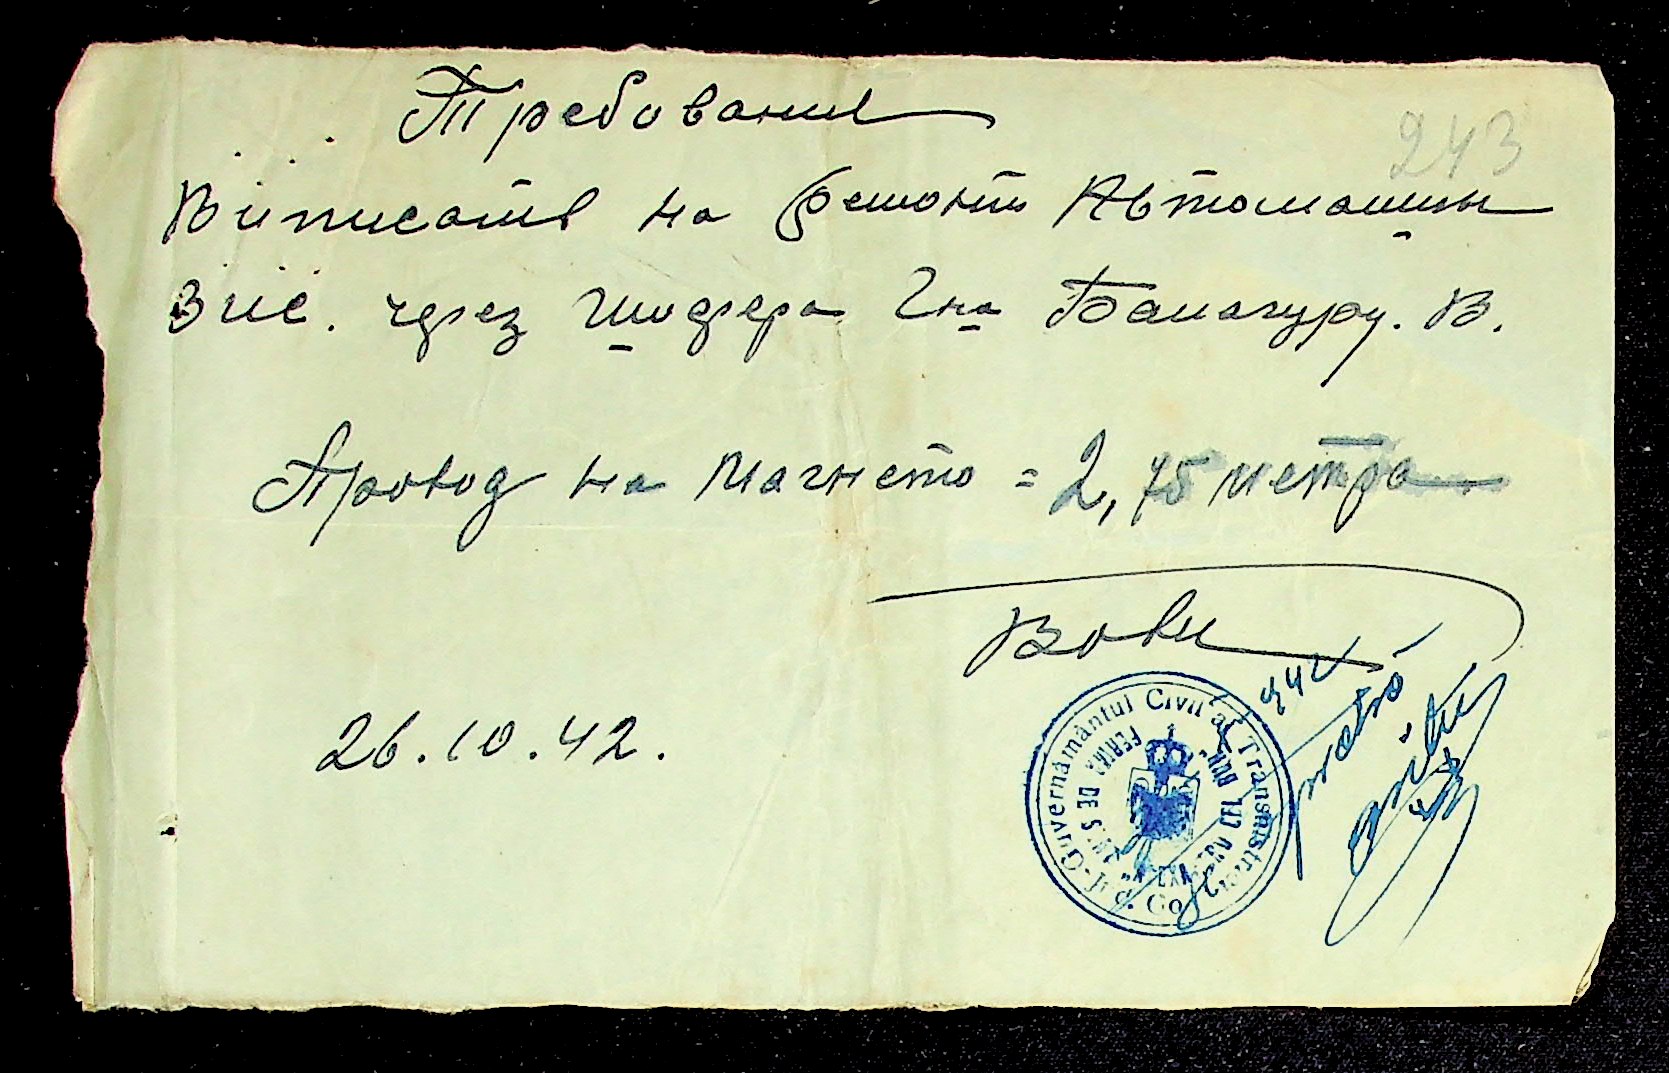 Требование
243
Виписать на ремонт Автомашины
Зис. через Шофера Гна Балагуру. В.
Провод на Магнето = 2,75 метра
26.10.42.
Guvernământul Civil al Transnistriei
FERMA DE STAT
CEL BUN